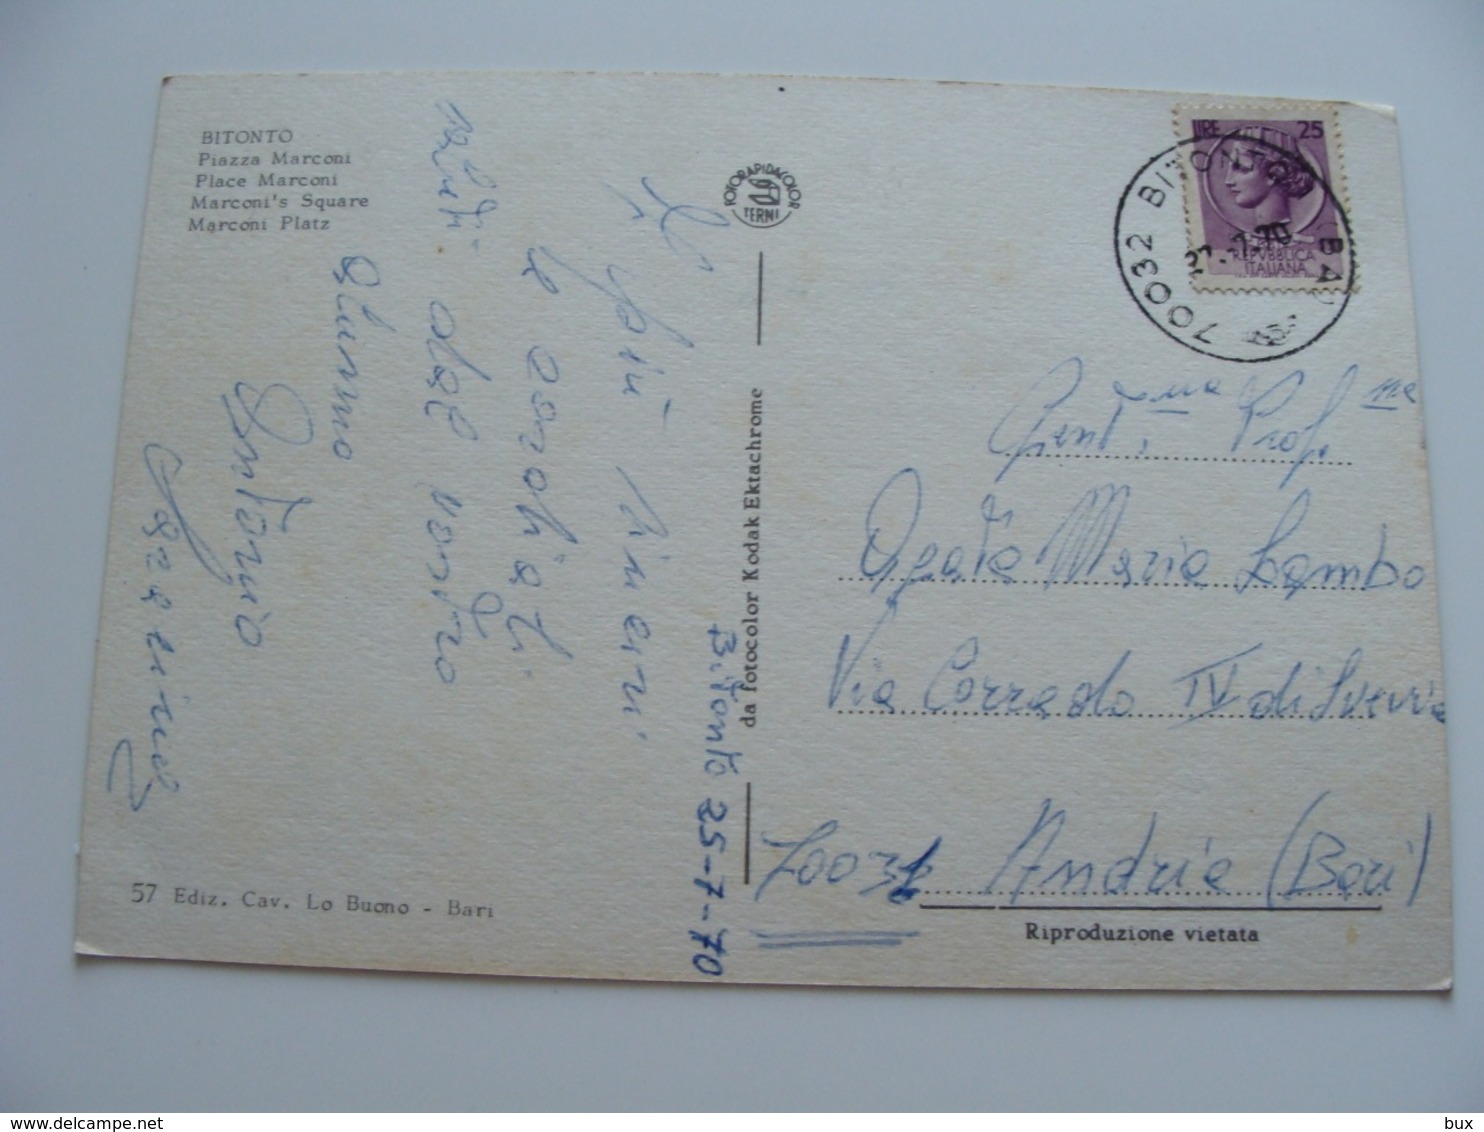 BITONTO
Piazza Marconi
Place Marconi
Marconi's Square
Marconi Platz
Bitonto 25-7-70
I più sinceri
e cordiali
saluti dal vostro
alunno
Antonio
57 Ediz. Cav. Lo Buono - Bari
FOTORAPIDACOLOR
TERNI
da fotocolor Kodak Ektachrome
LIRE 25
REPVBBLICA
ITALIANA
70032 BITONTO (BA)
-7-70
Gent.ma Prof.
Agata Maria Lombo
Via Corrado IV di Svevia
70031 Andria (Bari)
Riproduzione vietata
bux
delcampe.net